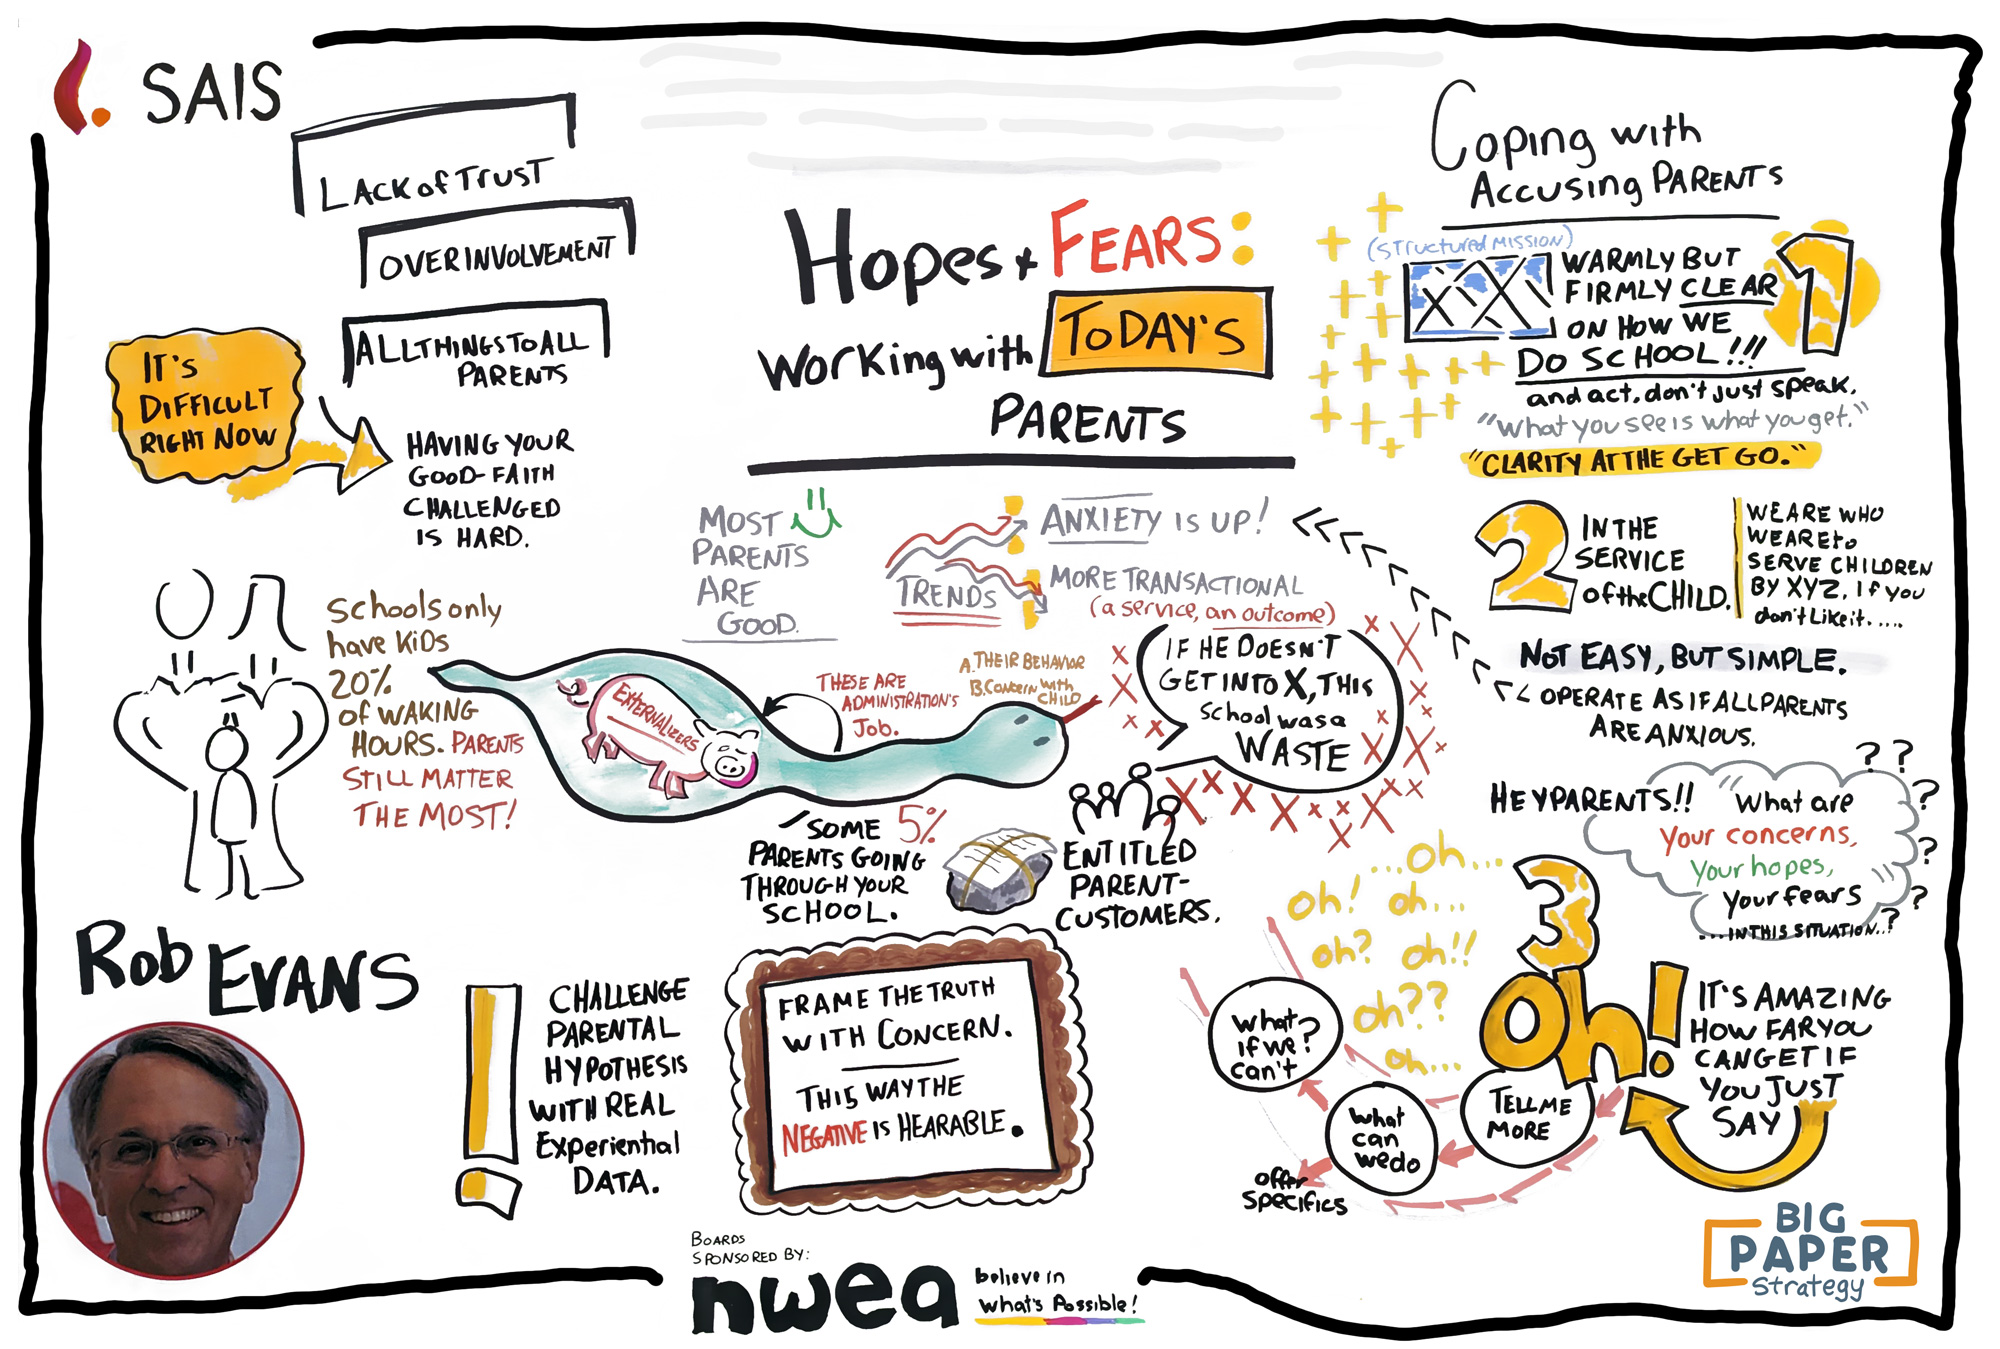 SAIS
LACK of TRUST
OVERINVOLVEMENT
ALL THINGS TO ALL
PARENTS
IT'S
DIFFICULT
RIGHT NOW
HAVING YOUR
GOOD-FAITH
CHALLENGED
IS HARD.
Schools only
have KiDS
20%
of WAKING
HOURS. PARENTS
STILL MATTER
THE MOST!
Rob EVANS
Hopes + FEARS:
Working with TODAY'S
PARENTS
MOST
PARENTS
ARE
GOOD.
TRENDS
ANXIETY IS UP!
MORE TRANSACTIONAL
(a service, an outcome)
IF HE DOESN'T
GET INTO X, THIS
School was a
WASTE
EXTERNALIZERS
THESE ARE
ADMINISTRATION'S
Job.
A. THEIR BEHAVIOR
B. Concern with
CHILD
SOME 5%
PARENTS GOING
THROUGH YOUR
SCHOOL.
ENTITLED
PARENT-
CUSTOMERS.
CHALLENGE
PARENTAL
HYPOTHESIS
WITH REAL
Experiential
DATA.
FRAME THE TRUTH
WITH CONCERN.
THIS WAY THE
NEGATIVE IS HEARABLE.
Coping with
Accusing PARENTS
(STructured MISSION)
1
WARMLY BUT
FIRMLY CLEAR
ON HOW WE
DO SCHOOL!!!
and act, don't just speak.
"What you see is what you get."
"CLARITY AT THE GET GO."
2
IN THE
SERVICE
of the CHILD.
WE ARE WHO
WE ARE to
SERVE CHILDREN
BY XYZ. If you
don't Like it.....
NOT EASY, BUT SIMPLE.
OPERATE AS IF ALL PARENTS
ARE ANXIOUS.
HEY PARENTS!!
"What are
your concerns,
Your hopes,
Your fears"
...IN THIS SITUATION..?
? ? ? ? ? ?
3
oh!
...oh...
oh! oh...
oh? oh!!
oh??
oh...
IT'S AMAZING
HOW FAR YOU
CAN GET IF
YOU JUST
SAY
TELL ME
MORE
What
can
we do
What
if we?
can't
offer
Specifics
BOARDS
SPONSORED BY:
nwea
believe in
what's Possible!
BIG
PAPER
Strategy